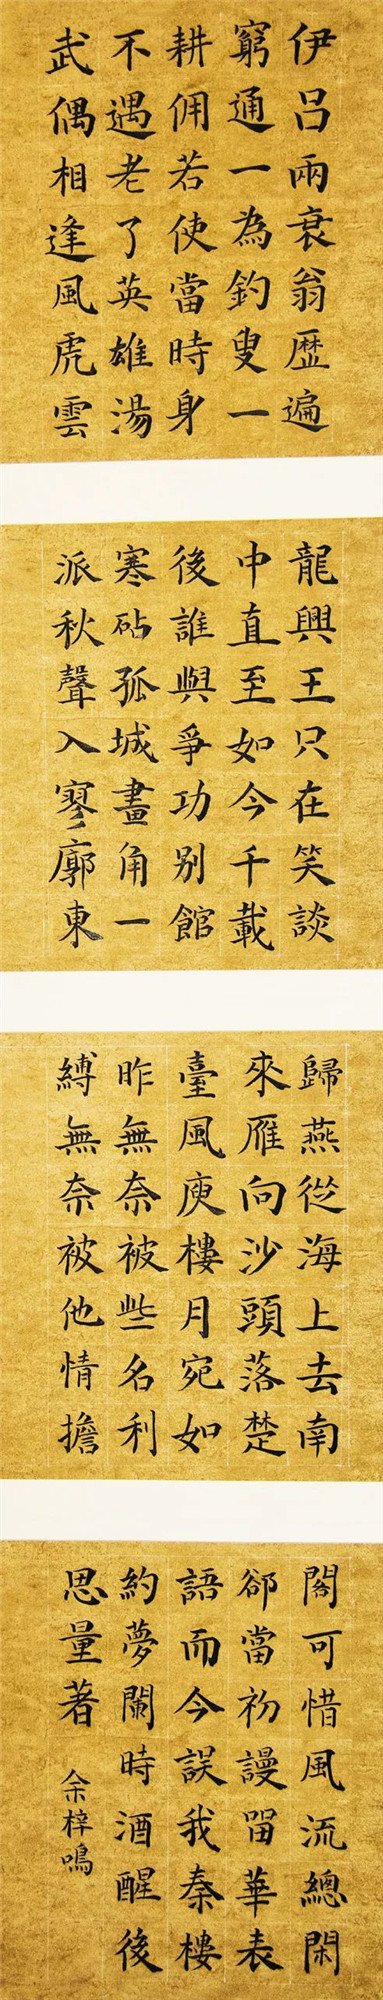 伊呂兩衰翁歷遍
窮通一為釣叟一
耕佣若使當時身
不遇老了英雄湯
武偶相逢風虎雲
龍興王只在笑談
中直至如今千載
後誰與爭功別館
寒砧孤城畫角一
派秋聲入寥廓東
歸燕從海上去南
來雁向沙頭落楚
臺風庾樓月宛如
昨無奈被些名利
縛無奈被他情擔
閣可惜風流總閑
卻當初謾留華表
語而今誤我秦樓
約夢闌時酒醒後
思量著 余梓鳴